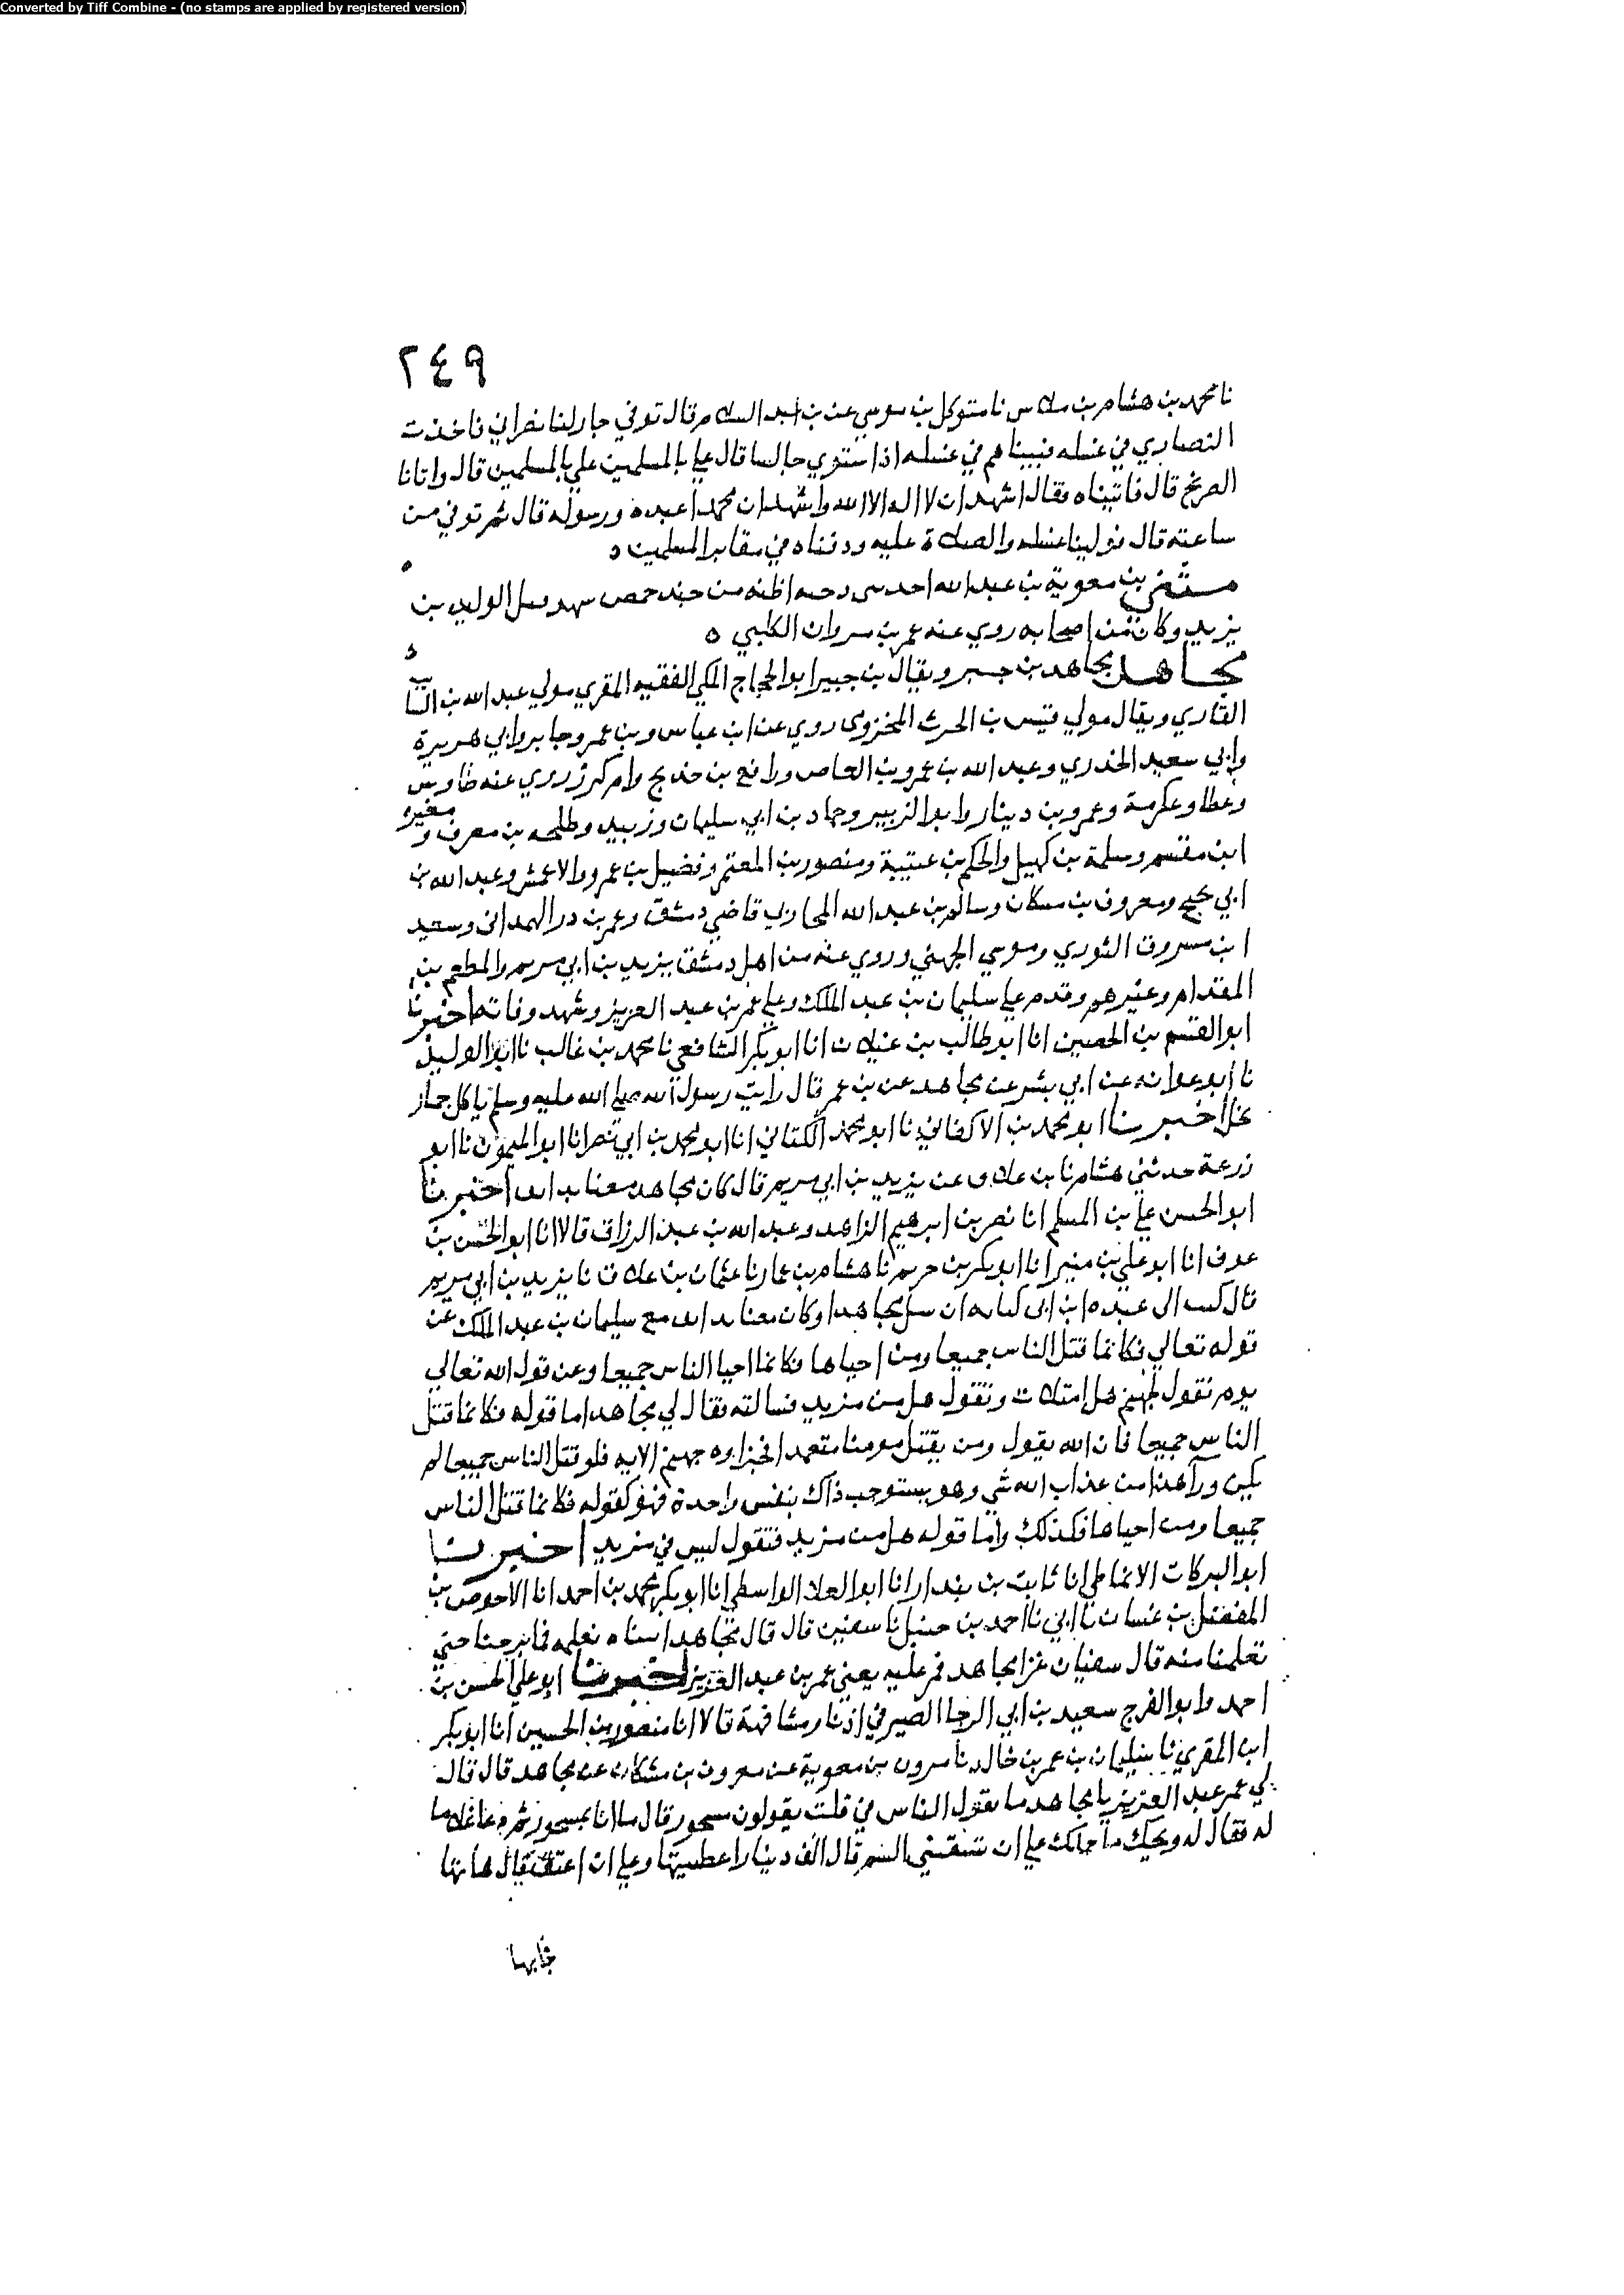 Converted by Tiff Combine - (no stamps are applied by registered version)
٢٤٩
نا محمد بن هشام بن ملاس نا متوكل بن موسى عن بن عبد السلام قال توفي جار لنا نصراني فاخذت
النصاري في غسله فبيناهم في غسله اذا ستوي جالسا قال علي بالمسلمين علي بالمسلمين قال واتانا
الصريخ قال فاتيناه فقال اشهد ان لا اله الا الله واشهد ان محمدا عبده ورسوله قال ثم توفي من
ساعته قال فولينا غسله والصلاة عليه ودفناه في مقابر المسلمين ه
بن معوية بن عبد الله احد بني اظنه من جند حمص شهد الوليد بن
يزيد وكان من اصحابه روي عنه عمر بن مروان الكلبي ه
مجاهد مجاهد بن جبر ويقال بن جبير ابو الحجاج المكي الفقيه المقري مولي عبد الله بن السائب
القاري ويقال مولي قيس بن الحرث المخزومي روي عن ابن عباس وبن عمر وجابر وابي هريرة
وابي سعيد الخدري وعبد الله بن عمرو بن العاص ورافع بن خديج وام كرز روي عنه طاوس
وعطا وعكرمة وعمرو بن دينار وابو الزبير وحماد بن ابي سليمان وزبيد وطلحه بن مصرف ومغيرة
ابن مقسم وسلمة بن كهيل والحكم بن عتيبة ومنصور بن المعتمر وفضيل بن عمرو والاعمش وعبد الله بن
ابي نجيح ومعروف بن مسكان وسالم بن عبد الله المحاربي قاضي دمشق وعمر بن در الهمداني وسعيد
ابن مسروق الثوري وموسي الجهني وروي عنه من اهل دمشق يزيد بن ابي مريم والمطعم بن
المقدام وغيرهم وقدم علي سليمان بن عبد الملك وعلي عمر بن عبد العزيز وشهد وفاته اخبرنا
ابو القسم بن الحصين انا ابو طالب بن غيلان انا ابو بكر الشافعي نا محمد بن غالب نا ابو الوليد
نا ابو عوانه عن ابي بشر عن مجاهد عن بن عمر قال رايت رسول الله صلي الله عليه وسلم ياكل جمار
نخل اخبرنا ابو محمد بن الاكفاني نا ابو محمد الكتاني انا ابو محمد بن ابي نصر انا ابو الميمون نا ابو
زرعة حدثني هشام نا بن علاق عن يزيد بن ابي مريم قال كان مجاهد معنا بدابق اخبرنا
ابو الحسن علي بن المسلم انا نصر بن ابرهيم الزاهد وعبد الله بن عبد الرزاق قالا انا ابو الحسن بن
عوف انا ابو علي بن منير انا ابو بكر بن خريم نا هشام بن عمار نا عثمان بن علاق نا يزيد بن ابي مريم
قال كتب الي عبده ابن ابي لبابه ان سل مجاهدا وكان معنا بدابق مع سليمان بن عبد الملك عن
قوله تعالي فكانما قتل الناس جميعا ومن احياها فكانما احيا الناس جميعا وعن قول الله تعالي
يوم نقول لجهنم هل امتلات وتقول هل من مزيد فسالته فقال لي مجاهد اما قوله فكانما قتل
الناس جميعا فان الله يقول ومن يقتل مومنا متعمدا فجزاوه جهنم الايه فلو قتل الناس جميعا لم
يكن ورا هذا من عذاب الله شي وهو يستوجب ذاك بنفس واحدة فهو كقوله فكانما قتل الناس
جميعا ومن احياها فكذلك واما قوله هل من مزيد فتقول ليس في مزيد اخبرنا
ابو البركات الانماطي انا ثابت بن بندار انا ابو العلا الواسطي انا ابو بكر محمد بن احمد انا الاحوص بن
المفضل بن غسان نا ابي نا احمد بن حنبل نا سفين قال قال مجاهد اتيناه نعلمه فما برحنا حتي
تعلمنا منه قال سفيان غزا مجاهد فمر عليه يعني عمر بن عبد العزيز اخبرنا ابو علي الحسن بن
احمد وابو الفرج سعيد بن ابي الرجا الصيرفي اذنا ومشافهة قالا انا منصور بن الحسين انا ابو بكر
ابن المقري نا سليمان بن عمر بن خالد نا مروان بن معوية عن معروف بن مشكان عن مجاهد قال قال
لي عمر عبد العزيز يا مجاهد ما يقول الناس في قلت يقولون مسحور قال ما انا بمسحور ثم دعا غلاما
له فقال له ويحك ما حملك علي ان تسقيني السم قال الف دينار اعطيتها وعلي ان اعتق فقال هاتها
فجا بها